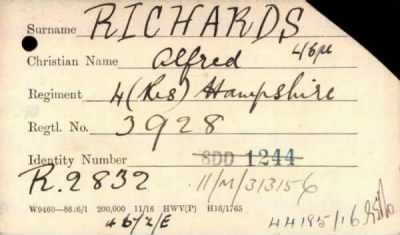 Surname RICHARDS
Christian Name Alfred
Regiment 4 (Res) Hampshire
Regtl. No. 3928
Identity Number 8DD 1244
R.2832 11/M/313156
W9460—8636/1 200,000 11/16 HWV(P) H16/1765
46/2/E 44185/16